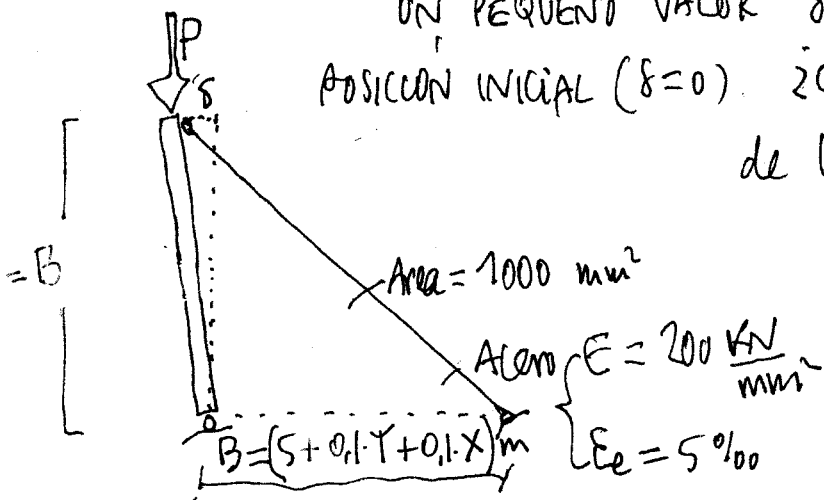 UN PEQUEÑO VALOR δ
P
δ
POSICIÓN INICIAL (δ=0). ¿C
de l
=B
Area = 1000 mm²
Acero E = 200 KN/mm²
εe = 5‰
B=(5+0,1·Y+0,1·X)m